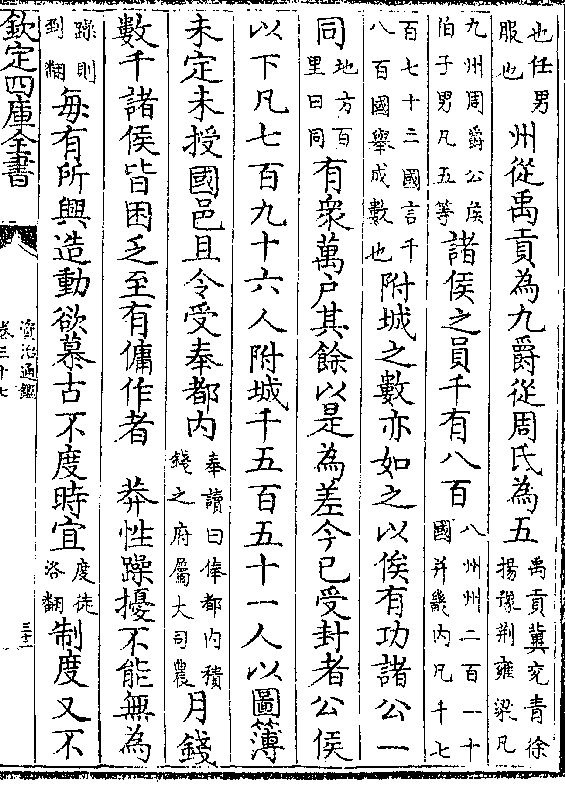 也任男服也州從禹貢為九爵從周氏為五禹貢冀兖青徐揚豫荆雍梁凡
九州周爵公侯伯子男凡五等諸侯之員千有八百八州州二百一十國并畿内凡千七
百七十三國言千八百國舉成數也附城之數亦如之以俟有功諸公一
同地方百里曰同有衆萬户其餘以是為差今已受封者公侯
以下凡七百九十六人附城千五百五十一人以圖簿
未定未授國邑且令受奉都内奉讀曰俸都内積錢之府屬大司農月錢
數千諸侯皆困乏至有傭作者 莽性躁擾不能無為
躁則到翻每有所興造動欲慕古不度時宜度徒洛翻制度又不
欽定四庫全書
資治通鑑
卷三十七